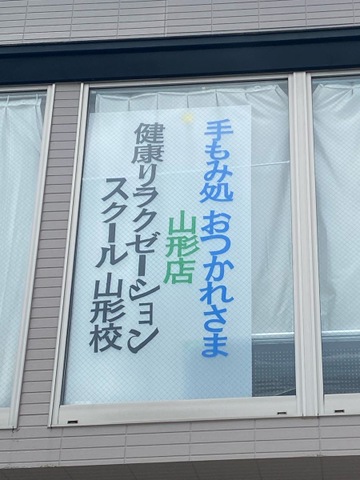 手もみ処 おつかれさま
山形店
健康リラクゼーション
スクール 山形校